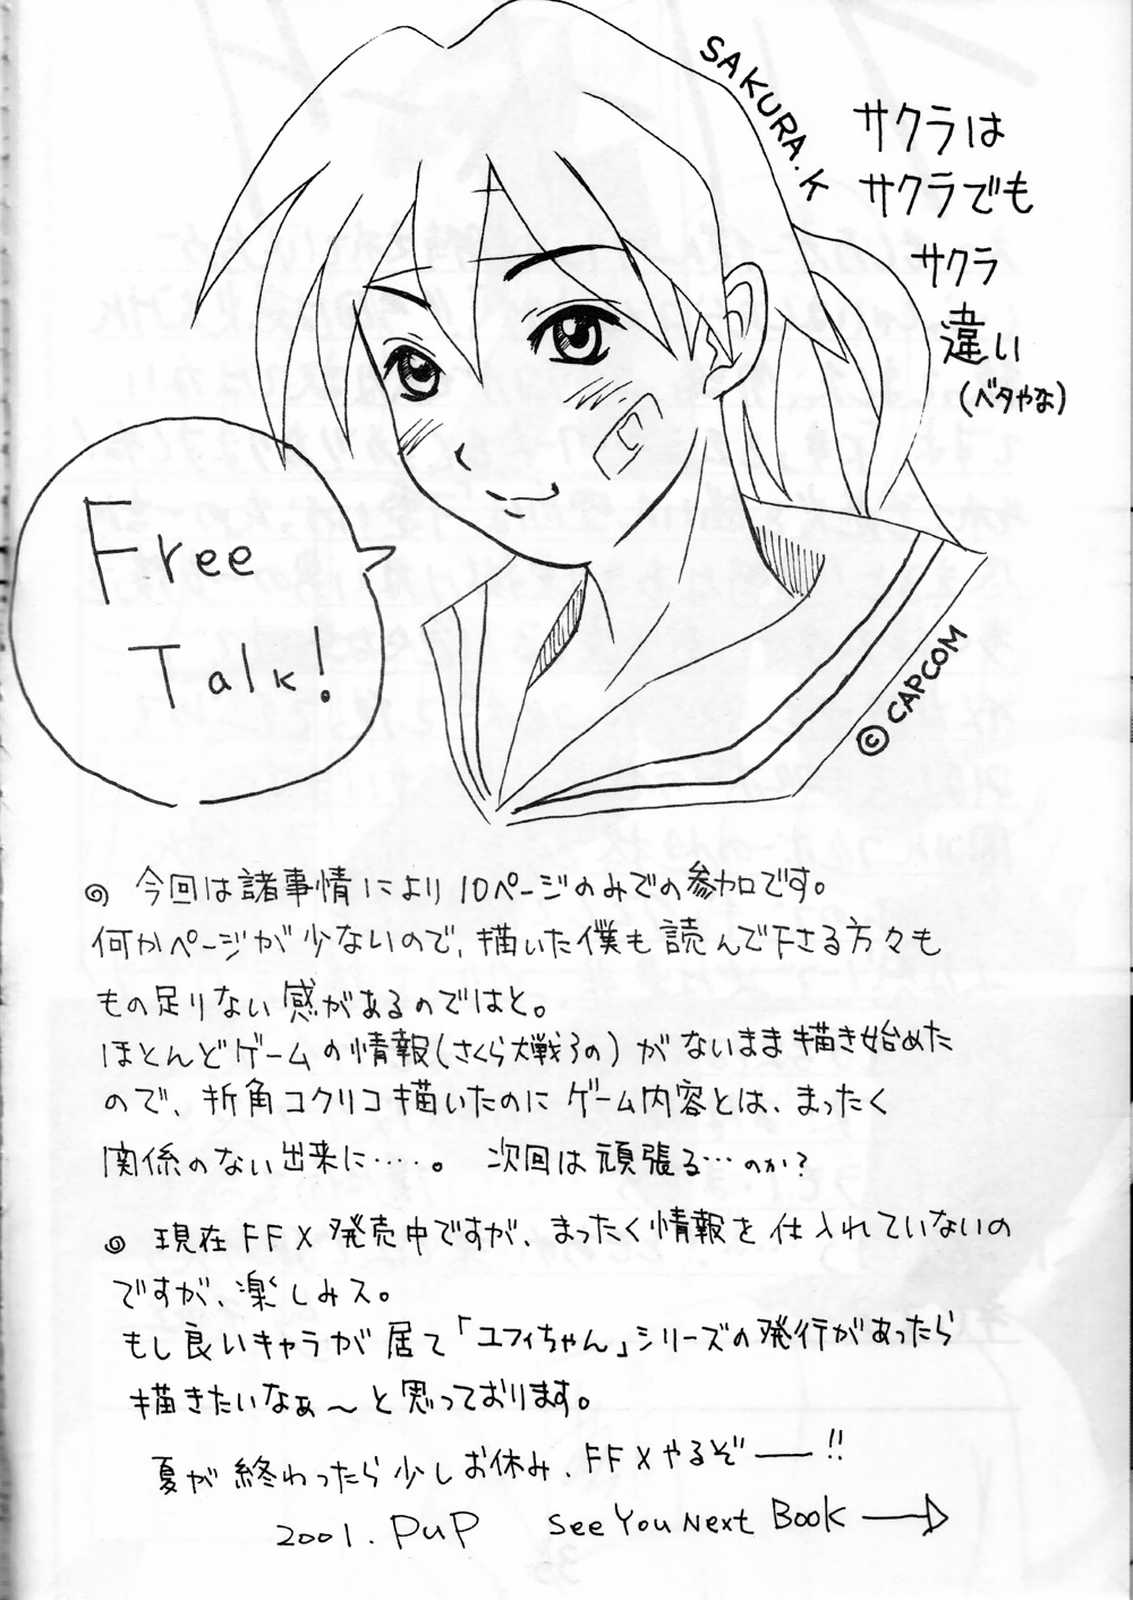 SAKURA.K
サクラは
サクラでも
サクラ
違い
(ベタやな)
Free
Talk!
© CAPCOM
今回は諸事情により10ページのみでの参加です。
何かページが少ないので、描いた僕も読んで下さる方々も
もの足りない感があるのではと。
ほとんどゲームの情報(さくら大戦3の)がないまま描き始めた
ので、折角コクリコ描いたのにゲーム内容とは、まったく
関係のない出来に‥‥。次回は頑張る…のか?
現在FFX発売中ですが、まったく情報を仕入れていないの
ですが、楽しみス。
もし良いキャラが居て「ユフィちゃん」シリーズの発行があったら
描きたいなぁ〜と思っております。
夏が終わったら少しお休み、FFXやるぞ──!!
2001. PuP See You Next Book →